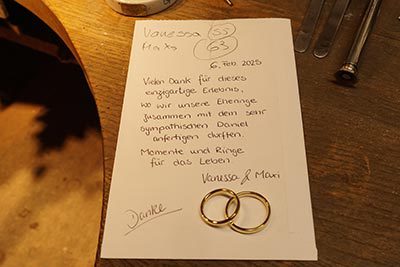 Vanessa 55
Maxi 63
6. Feb. 2025
Vielen Dank für dieses
einzigartige Erlebnis,
wo wir unsere Eheringe
zusammen mit dem sehr
sympathischen Daniel
anfertigen durften.
Momente und Ringe
für das Leben
Vanessa & Maxi
Danke